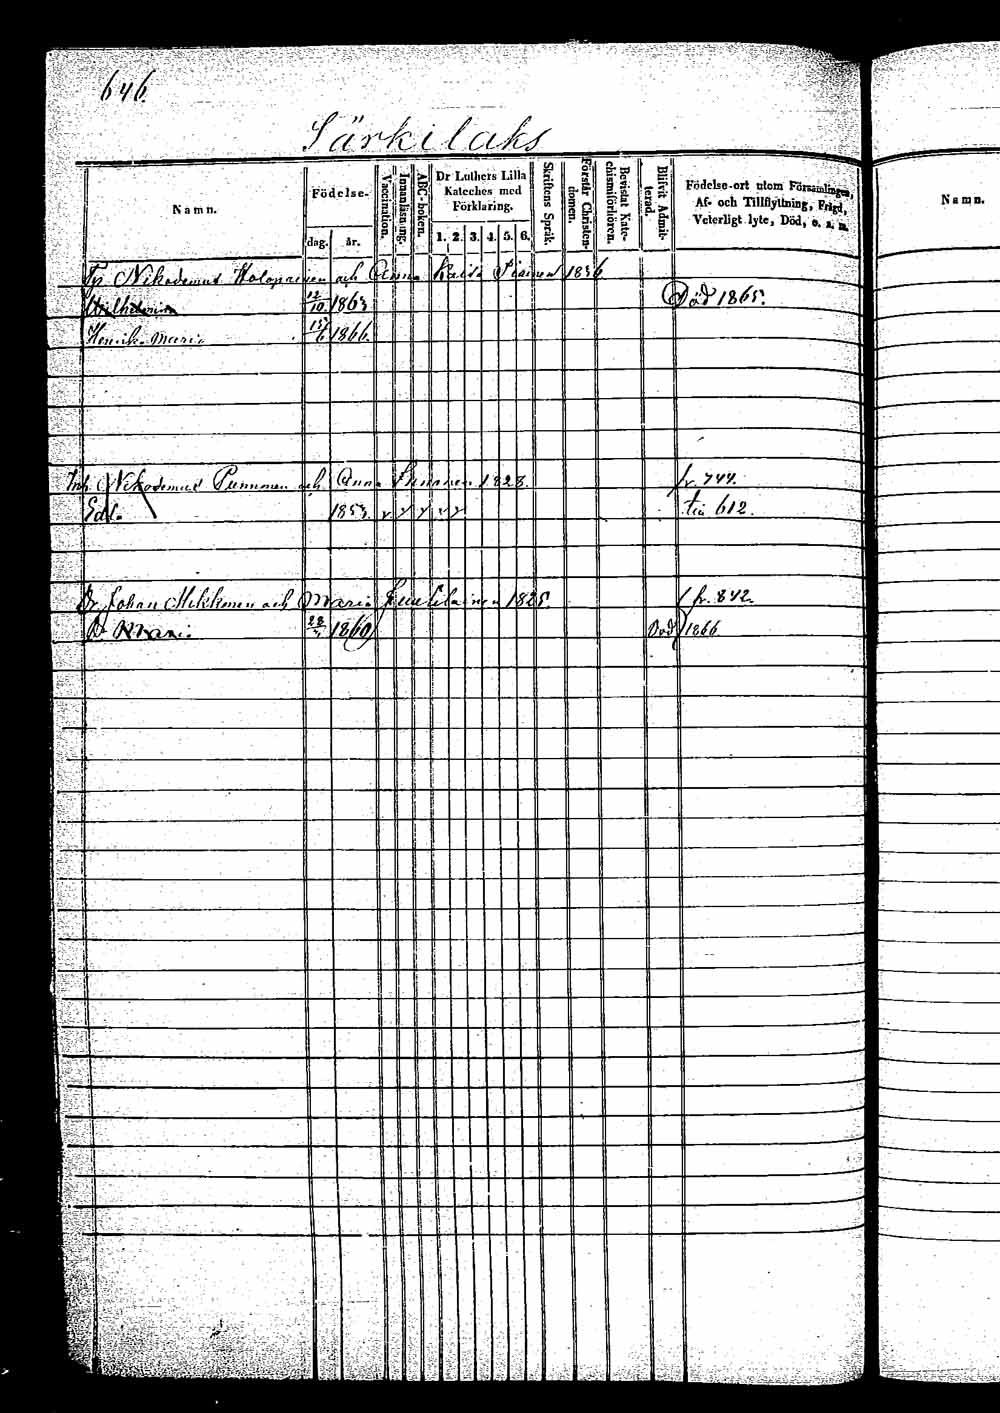 646.
Särkilaks
Namn.
Födelse-
dag. år.
Vaccination.
Innanläsning.
ABC-boken.
Dr Luthers Lilla Kateches med Förklaring.
1. 2. 3. 4. 5. 6.
Skriftens Språk.
Förstår Christendomen.
Bevistat Katechismiförhören.
Blifvit Admitterad.
Födelse-ort utom Församlingen,
Af- och Tillflyttning, Frägd,
Veterligt lyte, Död, o. s. m.
Namn.
Nikodemus Holopainen och Anna Kaisa 1836
Wilhelmina 12/10 1863 Död 1865.
Henrik 15/6 1866.
Inh. Nikodemus Punnonen och Anna 1828. fr. 744.
1853. 612.
Johan Mikkonen och Maria 1825. fr. 842.
1860 Död 1866